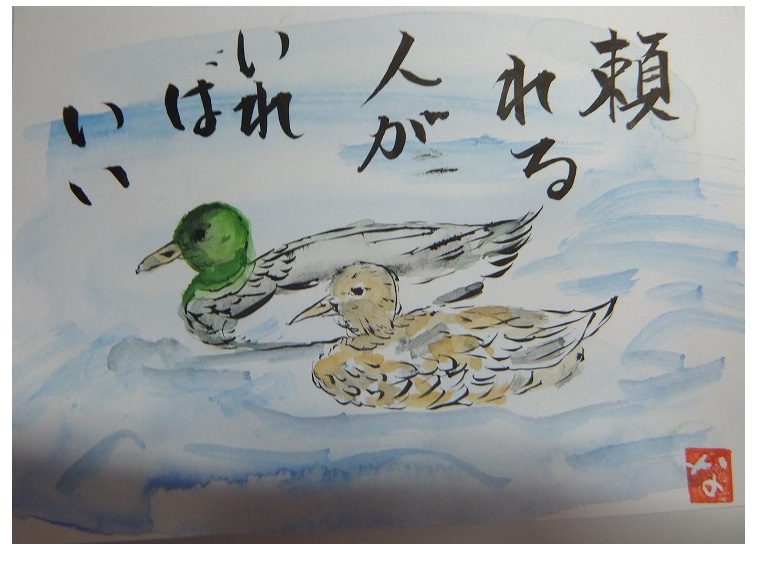 頼
れる
人が
いれ
ば
いい